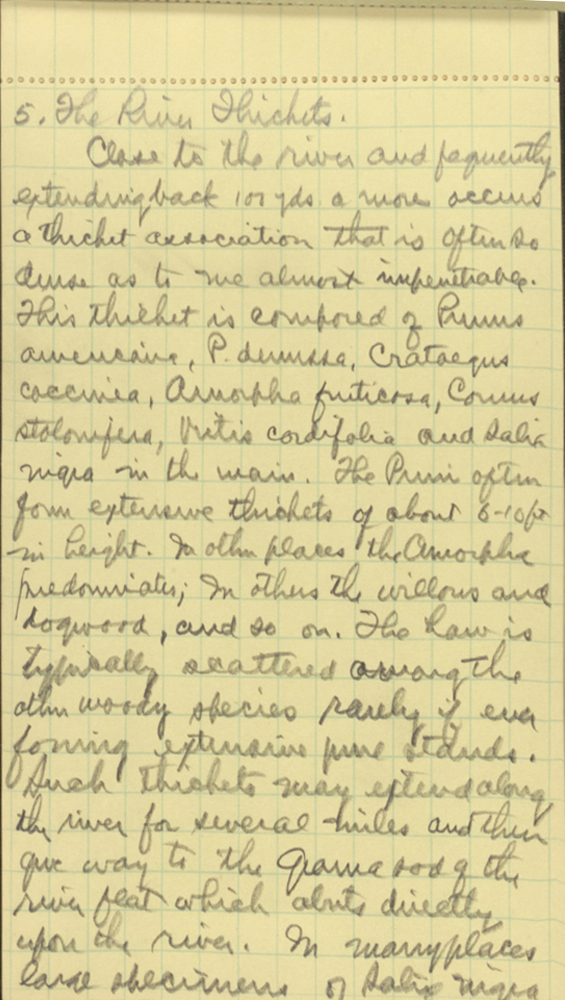 5. The River Thickets.
Close to the river and fequently
extending back 10 yds a more occurs
a thicket association that is often so
dense as to me almost impenetrable.
This thicket is composed of Prunus
americana, P. demissa, Crataegus
coccinea, Amorpha fruticosa, Cornus
stolonifera, Vitis cordifolia and Salix
nigra in the main. The Pruni often
form extensive thickets of about 6-10 ft
in height. In other places the Amorpha
predominates; In others the willows and
dogwood, and so on. The haw is
typically scattered among the
other woody species rarely if ever
forming extensive pure stands.
Such thickets may extend along
the river for several miles and then
give way to the Grama sod of the
river flat which abuts directly
upon the river. In many places
large specimens of Salix nigra